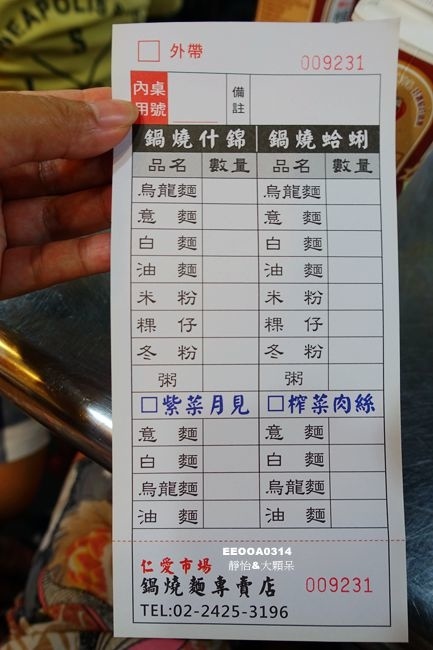 EAPOLIS
5
□ 外帶
009231
內用 桌號 備註
鍋燒什錦 鍋燒蛤蜊
品名 數量 品名 數量
烏龍麵 烏龍麵
意麵 意麵
白麵 白麵
油麵 油麵
米粉 米粉
粿仔 粿仔
冬粉 冬粉
粥 粥
□紫菜月見 □榨菜肉絲
意麵 意麵
白麵 白麵
烏龍麵 烏龍麵
油麵 油麵
EEOOA0314
仁愛市場 靜怡&大顆呆
鍋燒麵專賣店 009231
TEL:02-2425-3196